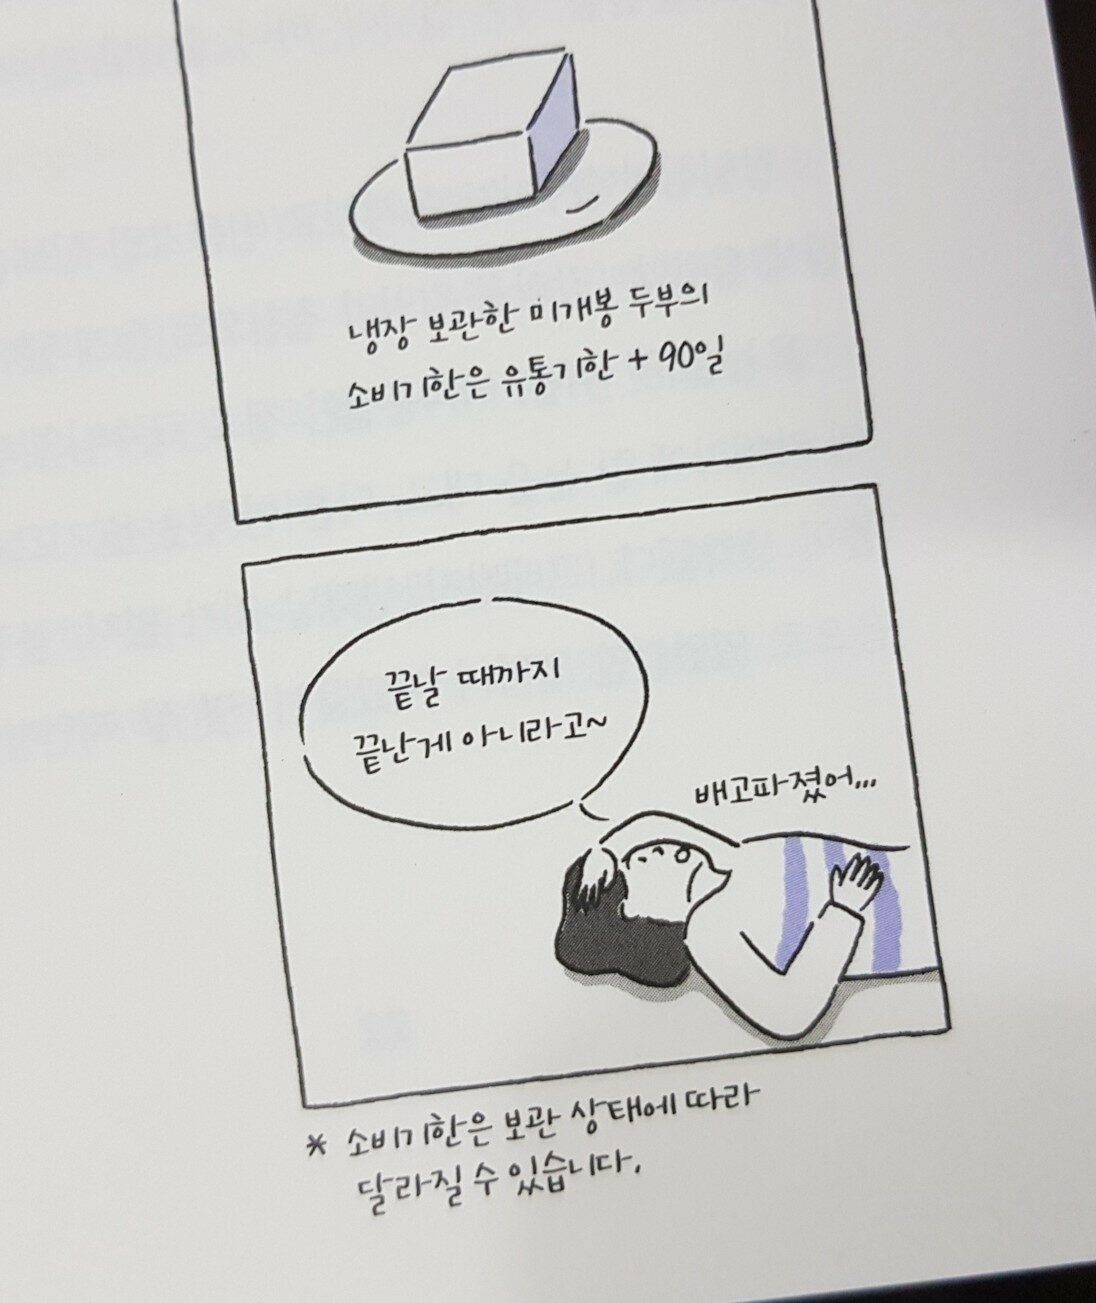 냉장 보관한 미개봉 두부의
소비기한은 유통기한 + 90일
끝날 때까지
끝난게 아니라고~
배고파졌어...
* 소비기한은 보관 상태에 따라
달라질 수 있습니다.